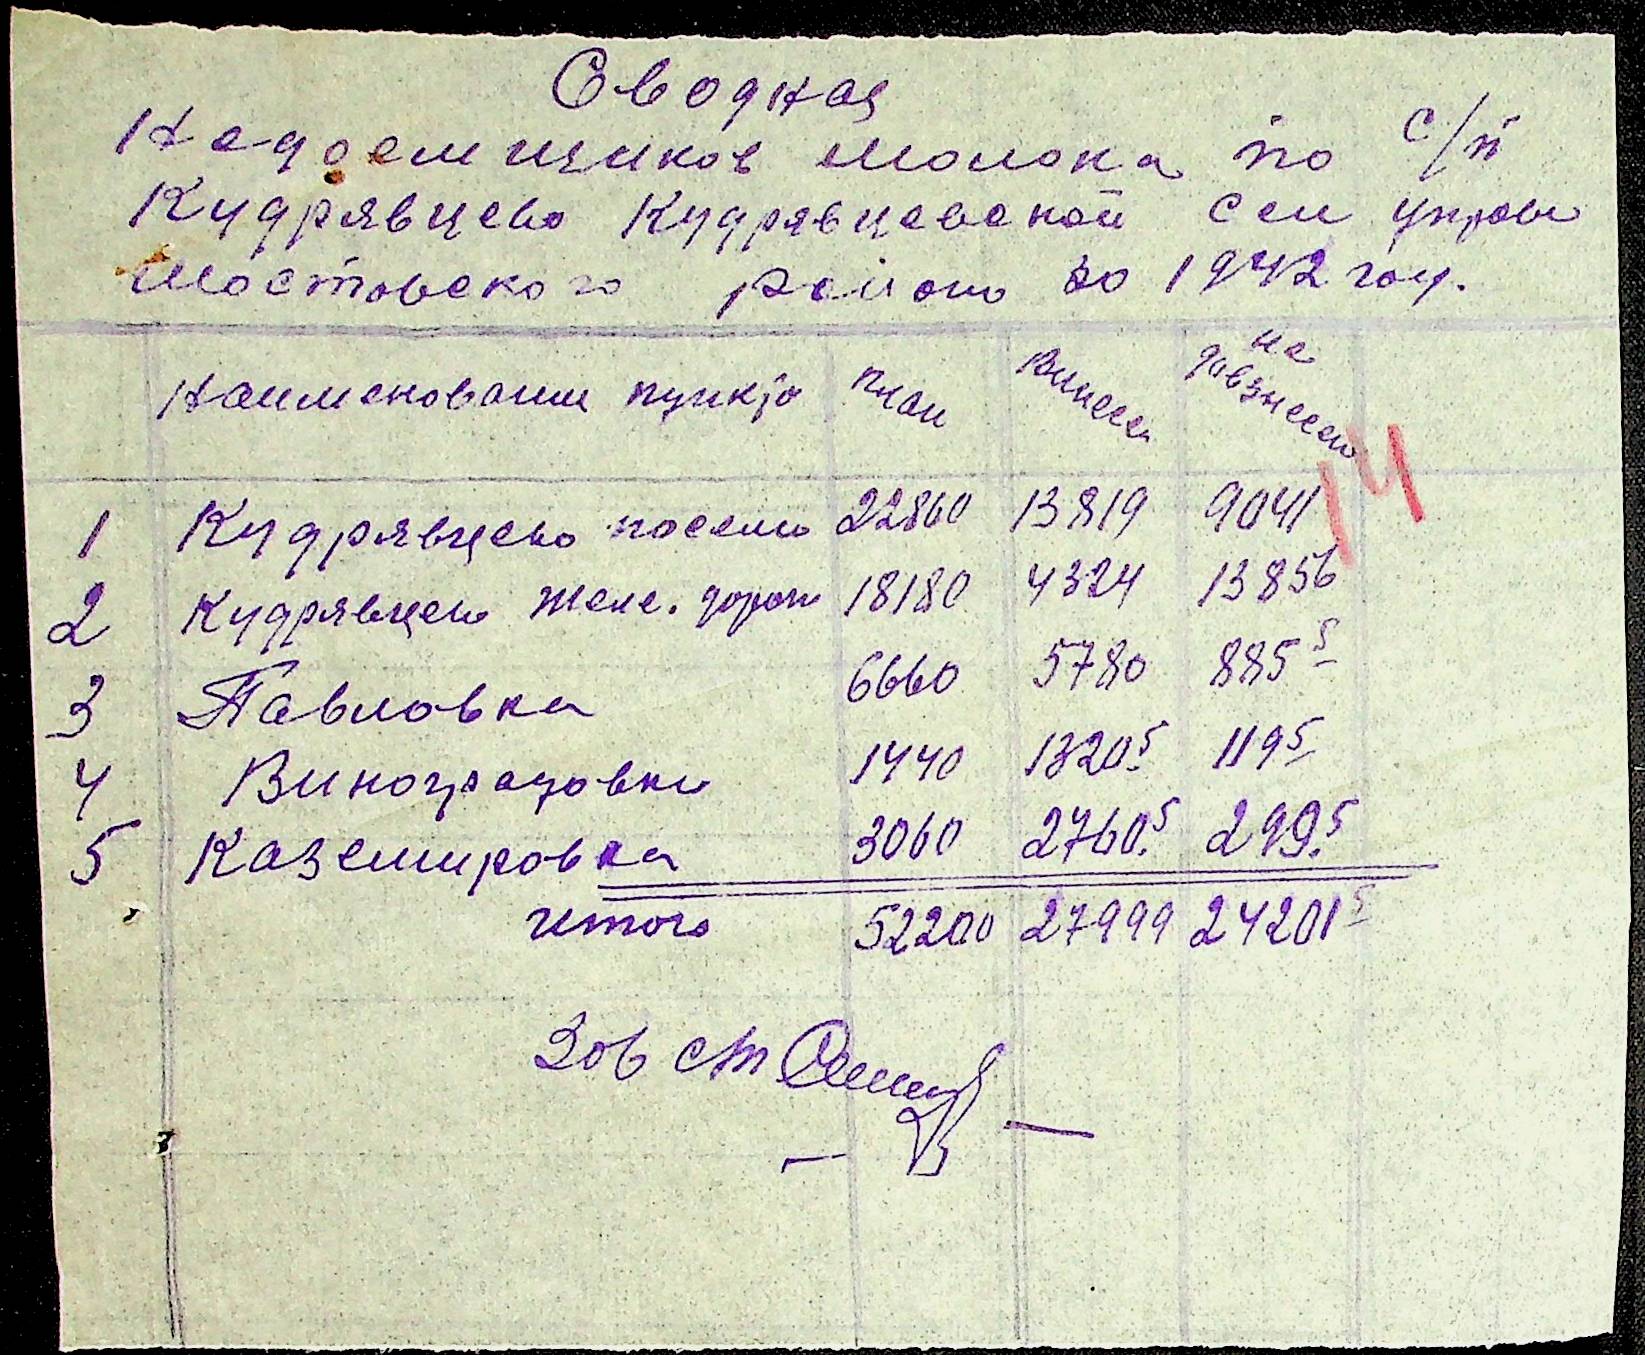 Сводная
Недоемщиков молока по с/п
Кудрявцево Кудрявцевской сел управы
Мостовского района за 1942 год.
Наименование пункта план Внесен не довзнесено
14
1 Кудрявцево поселок 22860 13819 9041
2 Кудрявцево желе. дорож 18180 4324 13856
3 Павловка 6660 5780 885 5
4 Виноградовка 1440 1320.5 119 5
5 Каземировка 3060 2760.5 299.5
итого 52200 27999 24201 5
Зав с/п